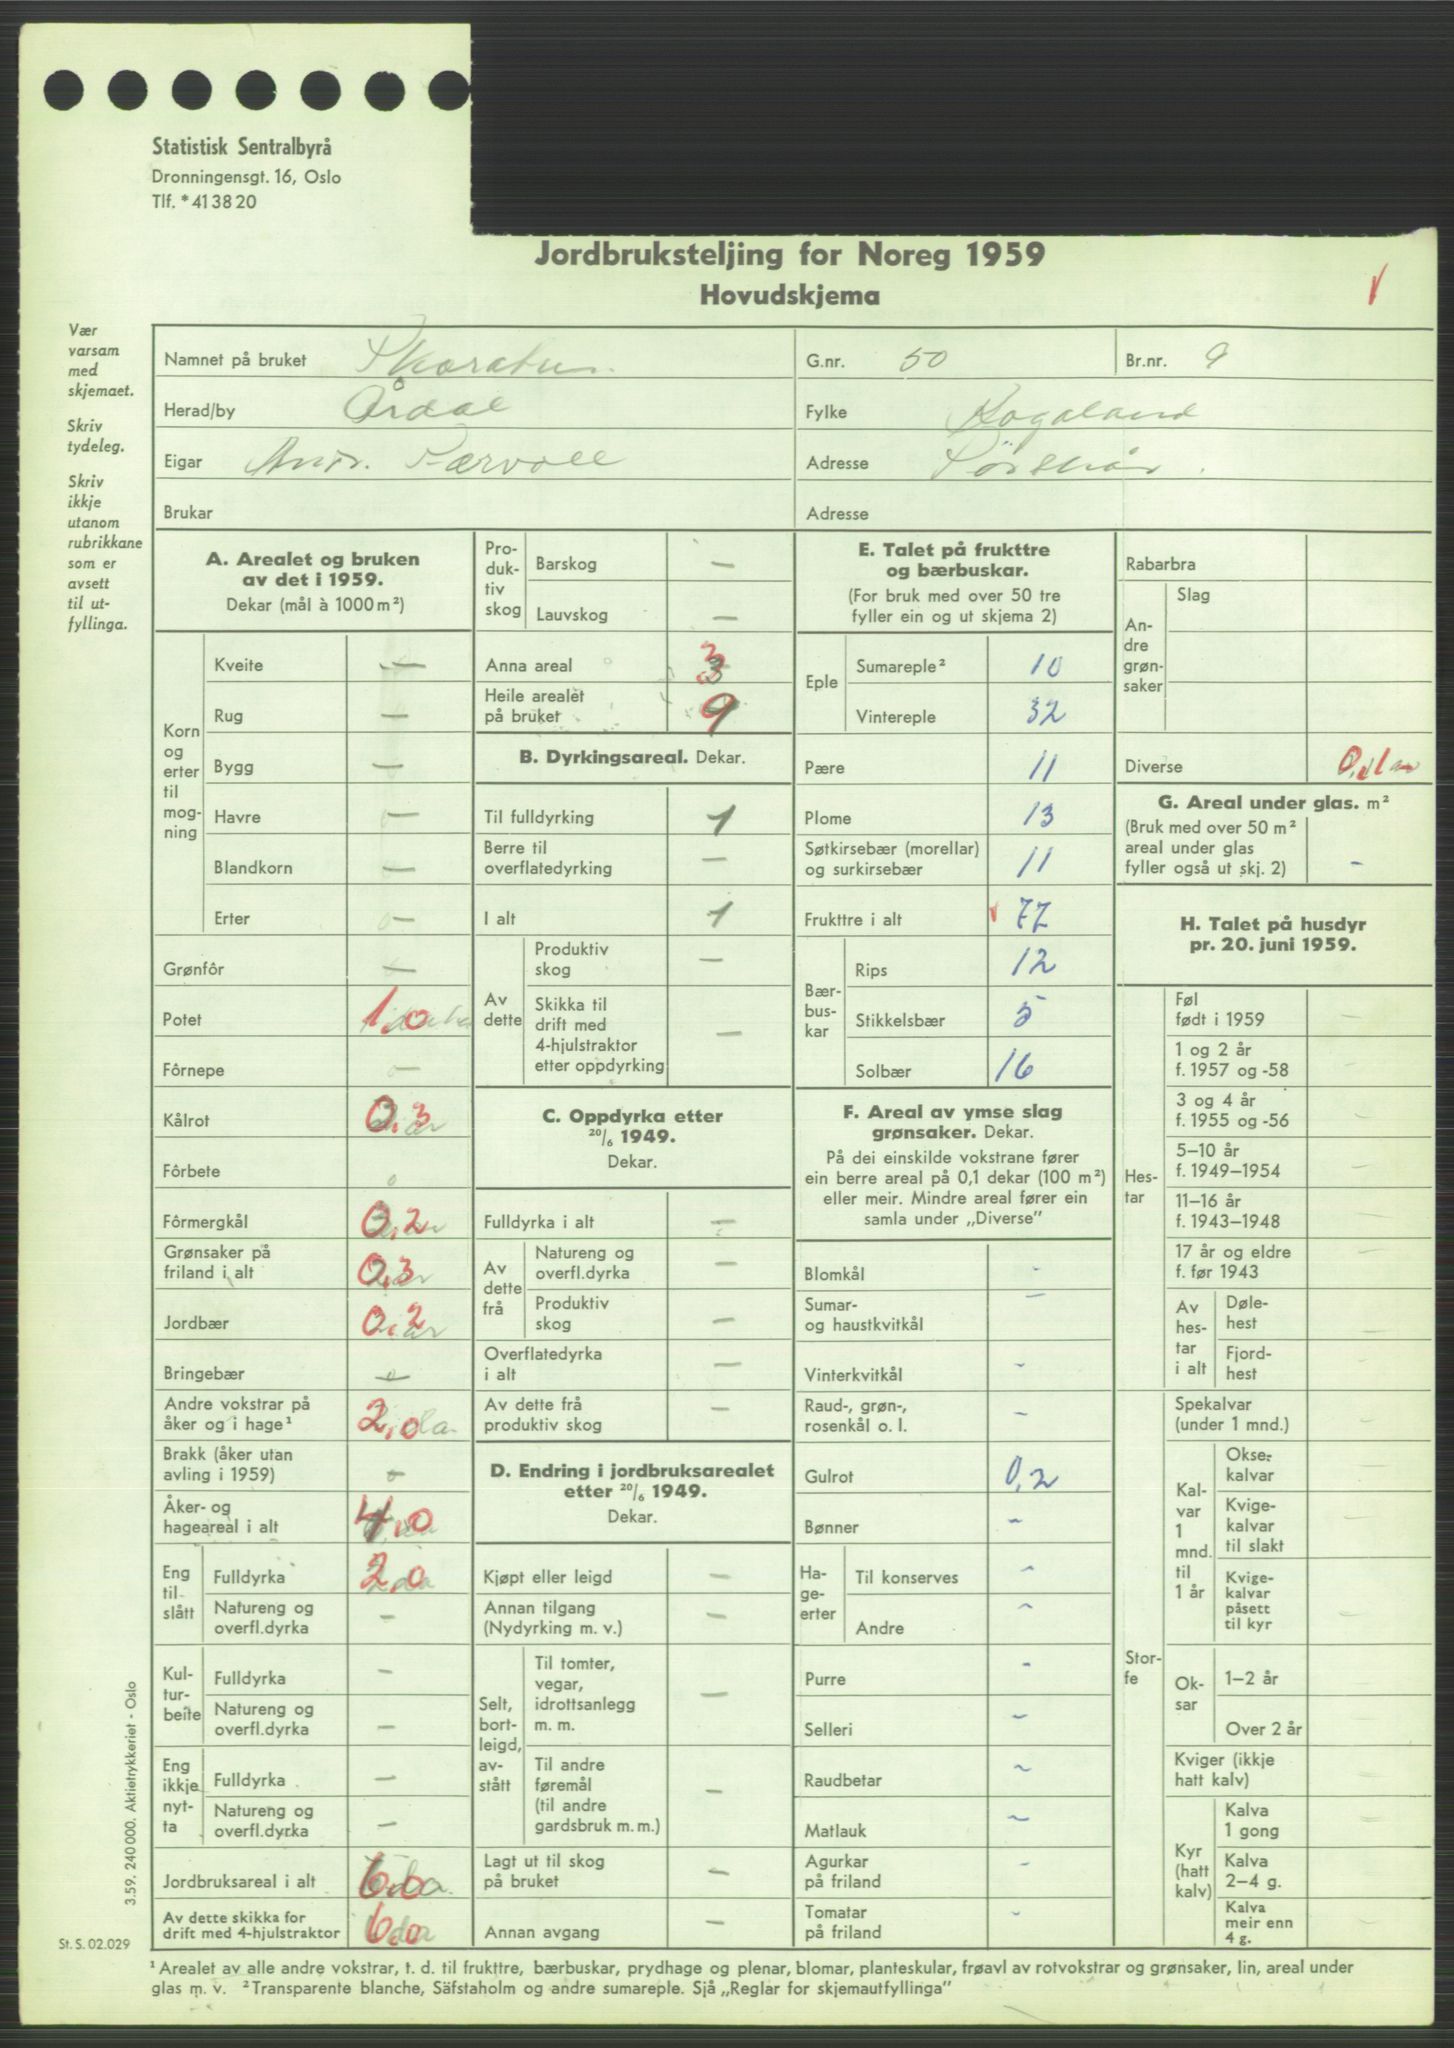 Statistisk Sentralbyrå
Dronningensgt. 16, Oslo
Tlf. * 41 38 20
Jordbruksteljing for Noreg 1959
Hovudskjema
Vær
varsam
med
skjemaet.
Skriv
tydeleg.
Skriv
ikkje
utanom
rubrikkane
som er
avsett
til ut-
fyllinga.
Namnet på bruket
G.nr. 50
Br.nr. 9
Herad/by Årdal
Fylke Rogaland
Eigar Andr. Tærvoll
Adresse
Brukar
Adresse
A. Arealet og bruken
av det i 1959.
Dekar (mål à 1000 m²)
Korn
og
erter
til
mog-
ning
Kveite —
Rug —
Bygg —
Havre —
Blandkorn —
Erter —
Grønfôr —
Potet 1,0
Fôrnepe —
Kålrot 0,3
Fôrbete
Fôrmergkål 0,2
Grønsaker på
friland i alt 0,3
Jordbær 0,2
Bringebær —
Andre vokstrar på
åker og i hage¹ 2,0
Brakk (åker utan
avling i 1959) —
Åker- og
hageareal i alt 4,0
Eng
til
slått
Fulldyrka 2,0
Natureng og
overfl.dyrka —
Kul-
tur-
beite
Fulldyrka —
Natureng og
overfl.dyrka —
Eng
ikkje
nyt-
ta
Fulldyrka —
Natureng og
overfl.dyrka —
Jordbruksareal i alt 6,0
Av dette skikka for
drift med 4-hjulstraktor 6,0
Pro-
duk-
tiv
skog
Barskog —
Lauvskog —
Anna areal 3
Heile arealet
på bruket 9
B. Dyrkingsareal. Dekar.
Til fulldyrking 1
Berre til
overflatedyrking —
I alt 1
Av
dette
Produktiv
skog —
Skikka til
drift med
4-hjulstraktor
etter oppdyrking —
C. Oppdyrka etter
20/6 1949.
Dekar.
Fulldyrka i alt —
Av
dette
frå
Natureng og
overfl.dyrka —
Produktiv
skog —
Overflatedyrka
i alt —
Av dette frå
produktiv skog —
D. Endring i jordbruksarealet
etter 20/6 1949.
Dekar.
Kjøpt eller leigd —
Annan tilgang
(Nydyrking m. v.) —
Selt,
bort-
leigd,
av-
stått
Til tomter,
vegar,
idrottsanlegg
m. m. —
Til andre
føremål
(til andre
gardsbruk m. m.) —
Lagt ut til skog
på bruket —
Annan avgang —
E. Talet på frukttre
og bærbuskar.
(For bruk med over 50 tre
fyller ein og ut skjema 2)
Eple
Sumareple² 10
Vintereple 32
Pære 11
Plome 13
Søtkirsebær (morellar)
og surkirsebær 11
Frukttre i alt 77
Bær-
bus-
kar
Rips 12
Stikkelsbær 5
Solbær 16
F. Areal av ymse slag
grønsaker. Dekar.
På dei einskilde vokstrane fører
ein berre areal på 0,1 dekar (100 m²)
eller meir. Mindre areal fører ein
samla under „Diverse”
Blomkål -
Sumar-
og haustkvitkål —
Vinterkvitkål -
Raud-, grøn-,
rosenkål o. l. -
Gulrot 0,2
Bønner -
Ha-
ge-
erter
Til konserves -
Andre -
Purre -
Selleri -
Raudbetar -
Matlauk -
Agurkar
på friland -
Tomatar
på friland -
Rabarbra
An-
dre
grøn-
saker
Slag
Diverse 0,1
G. Areal under glas. m²
(Bruk med over 50 m²
areal under glas
fyller også ut skj. 2) -
H. Talet på husdyr
pr. 20. juni 1959.
Hes-
tar
Føl
født i 1959 —
1 og 2 år
f. 1957 og -58 —
3 og 4 år
f. 1955 og -56 —
5–10 år
f. 1949–1954 —
11–16 år
f. 1943–1948 —
17 år og eldre
f. før 1943 —
Av
hes-
tar
i alt
Døle-
hest —
Fjord-
hest —
Stor-
fe
Spekalvar
(under 1 mnd.) —
Kal-
var
1
mnd.
til
1 år
Okse-
kalvar —
Kvige-
kalvar
til slakt —
Kvige-
kalvar
påsett
til kyr —
Ok-
sar
1–2 år —
Over 2 år —
Kviger (ikkje
hatt kalv) —
Kyr
(hatt
kalv)
Kalva
1 gong —
Kalva
2–4 g. —
Kalva
meir enn
4 g. —
3.59. 240 000. Aktietrykkeriet - Oslo
St. S. 02.029
¹ Arealet av alle andre vokstrar, t. d. til frukttre, bærbuskar, prydhage og plenar, blomar, planteskular, frøavl av rotvokstrar og grønsaker, lin, areal under
glas m. v. ² Transparente blanche, Säfstaholm og andre sumareple. Sjå „Reglar for skjemautfyllinga”